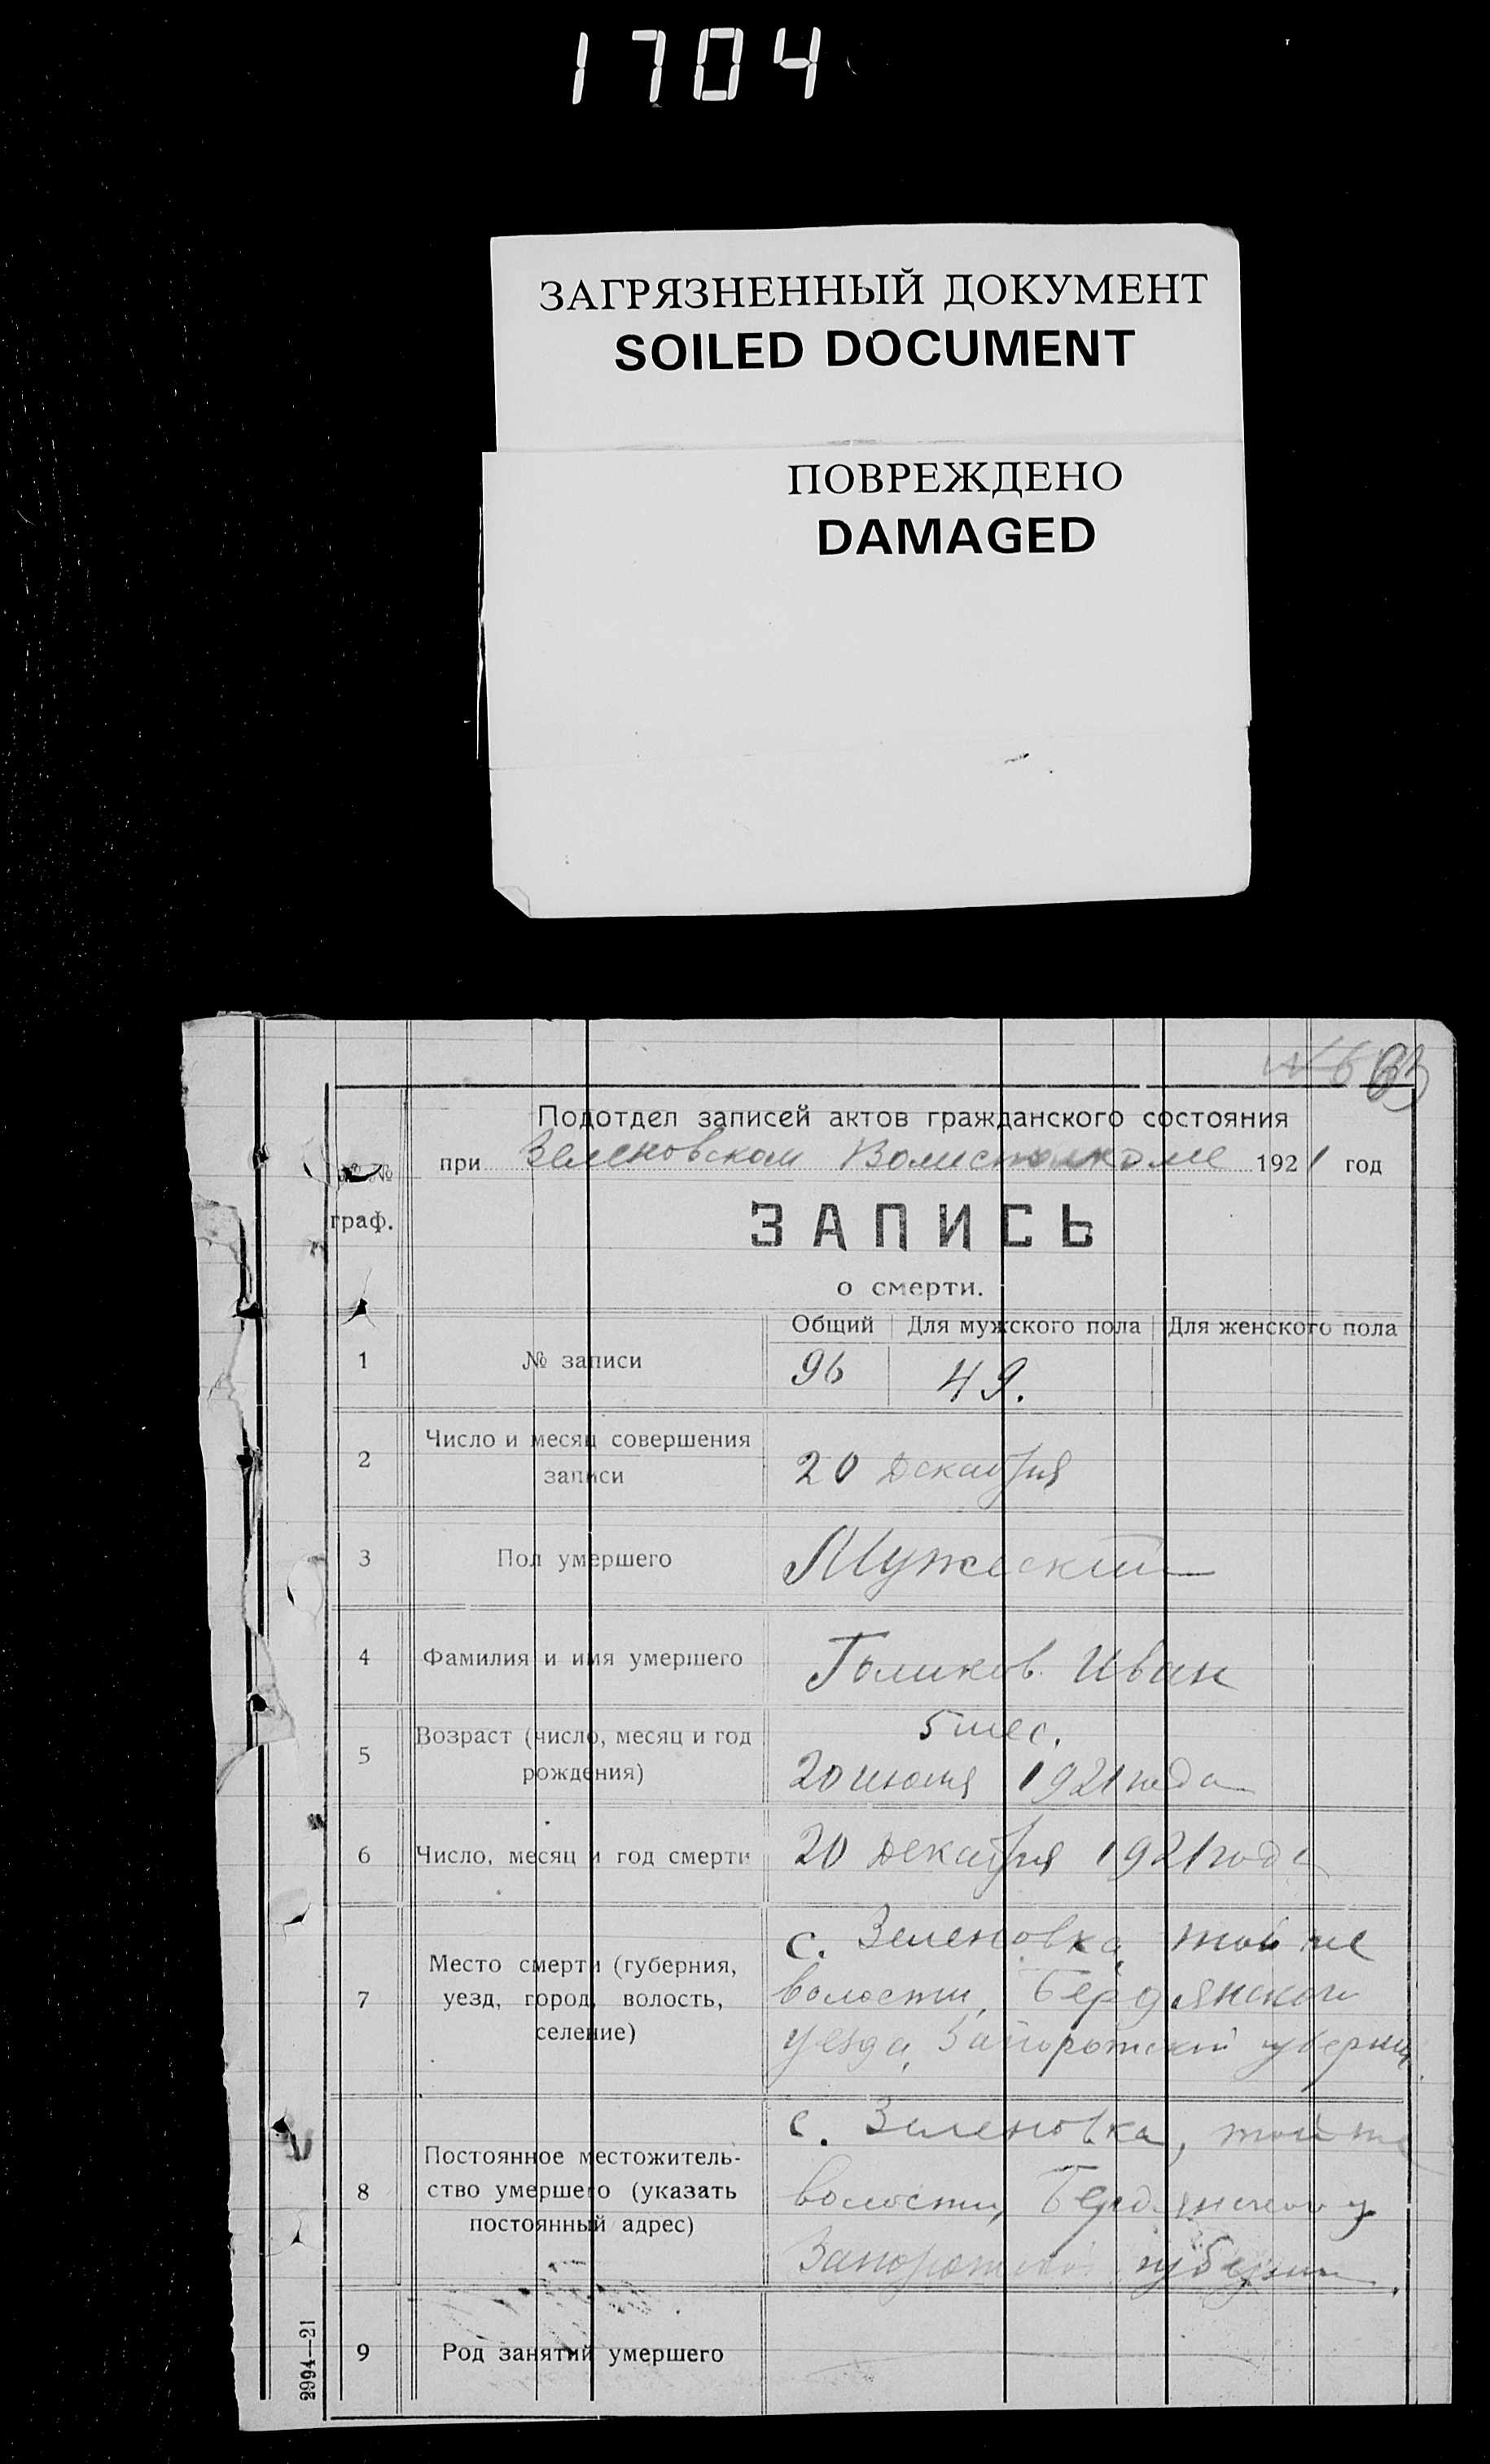 1704
ЗАГРЯЗНЕННЫЙ ДОКУМЕНТ
SOILED DOCUMENT
ПОВРЕЖДЕНО
DAMAGED
Подотдел записей актов гражданского состояния
при Зеленовском Волисполкоме 1921 год
№ №
граф.
ЗАПИСЬ
о смерти.
Общий Для мужского пола Для женского пола
1 № записи 96 49.
2 Число и месяц совершения
записи 20 Декабря
3 Пол умершего Мужеский
4 Фамилия и имя умершего Голиков Иван
5 мес.
5 Возраст (число, месяц и год
рождения) 20 июля 1921 года
6 Число, месяц и год смерти 20 Декабря 1921 года
с. Зеленовка, той же
7 Место смерти (губерния,
уезд, город, волость,
селение) волости, Бердянского
уезда, Запорожской губернии
с. Зеленовка, той же
8 Постоянное местожитель-
ство умершего (указать
постоянный адрес) волости, Бердянского у
Запорожской губернии.
9 Род занятий умершего
2994—21